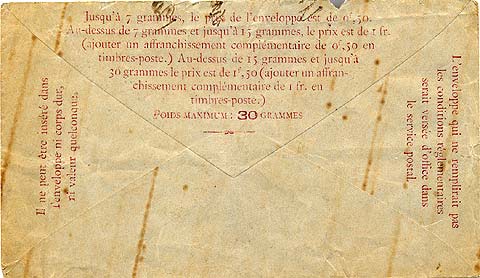 Jusqu'à 7 grammes, le prix de l'enveloppe est de 0f,50.
Au-dessus de 7 grammes et jusqu'à 15 grammes, le prix est de 1 fr.
(ajouter un affranchissement complémentaire de 0f,50 en
timbres-poste.) Au-dessus de 15 grammes et jusqu'à
30 grammes le prix est de 1f,50 (ajouter un affran-
chissement complémentaire de 1 fr. en
timbres-poste.)
POIDS MAXIMUM: 30 GRAMMES
Il ne peut être inséré dans
l'enveloppe ni corps dur,
ni valeur quelconque.
L'enveloppe qui ne remplirait pas
les conditions réglementaires
serait versée d'office dans
le service postal.